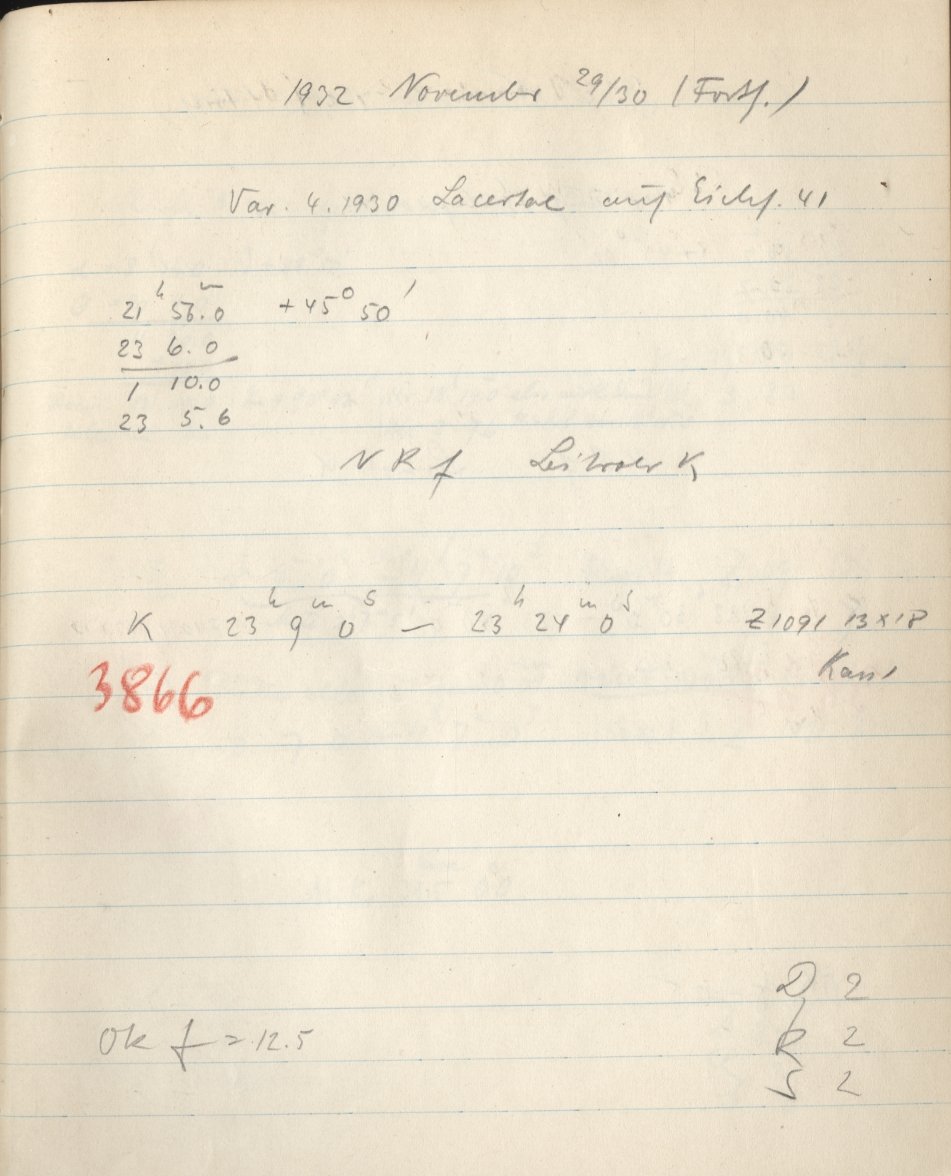 1932 November 29/30 (Forts.)
Var. 4.1930 Lacertae auf Eichf. 41
21ʰ 56.ᵐ0 +45° 50'
23 6.0
1 10.0
23 5.6
N R f K
K 23ʰ 9ᵐ 0ˢ — 23ʰ 24ᵐ 0ˢ Z1091 13×18
3866 Kass
D 2
Ok f = 12.5 R 2
S 2